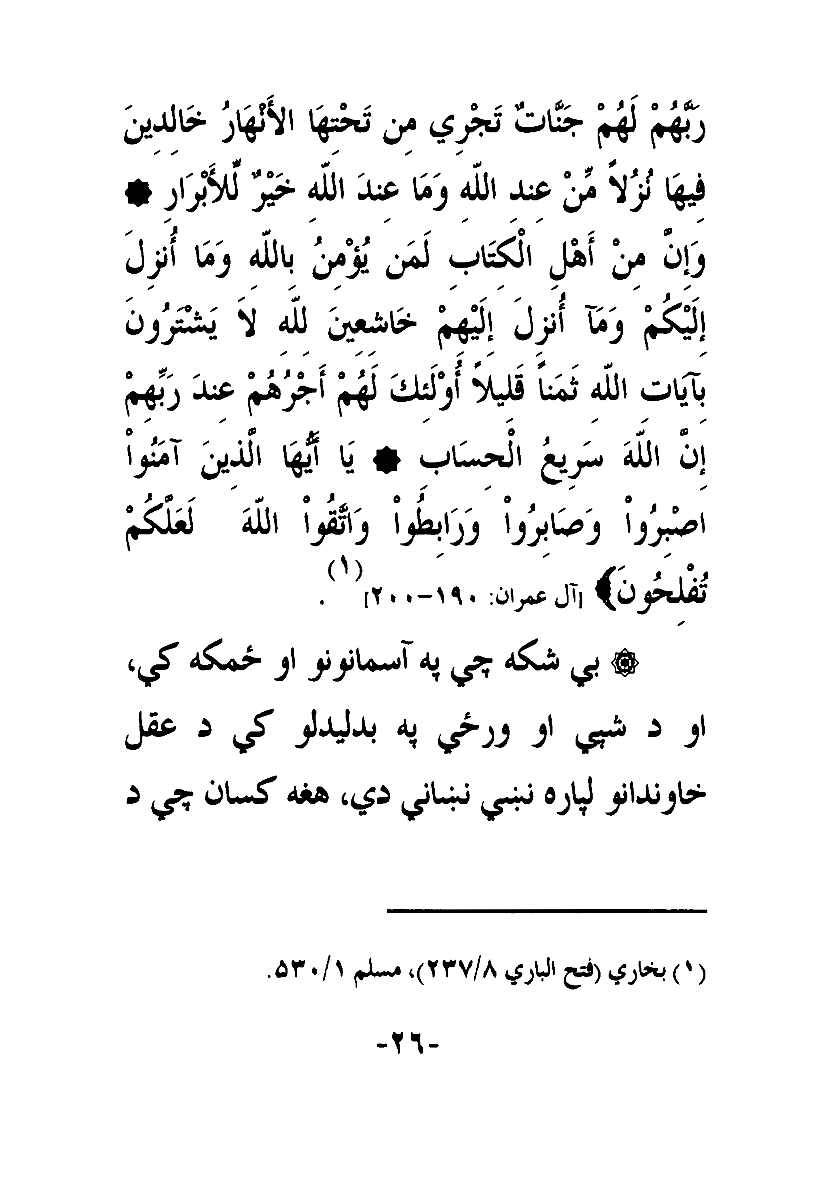 رَبَّهُمْ لَهُمْ جَنَّاتٌ تَجْرِي مِن تَحْتِهَا الأَنْهَارُ خَالِدِينَ
فِيهَا نُزُلاً مِّنْ عِندِ اللّهِ وَمَا عِندَ اللّهِ خَيْرٌ لِّلأَبْرَارِ ۞
وَإِنَّ مِنْ أَهْلِ الْكِتَابِ لَمَن يُؤْمِنُ بِاللّهِ وَمَا أُنزِلَ
إِلَيْكُمْ وَمَآ أُنزِلَ إِلَيْهِمْ خَاشِعِينَ لِلّهِ لاَ يَشْتَرُونَ
بِآيَاتِ اللّهِ ثَمَناً قَلِيلاً أُوْلَئِكَ لَهُمْ أَجْرُهُمْ عِندَ رَبِّهِمْ
إِنَّ اللّهَ سَرِيعُ الْحِسَابِ ۞ يَا أَيُّهَا الَّذِينَ آمَنُواْ
اصْبِرُواْ وَصَابِرُواْ وَرَابِطُواْ وَاتَّقُواْ اللّهَ لَعَلَّكُمْ
تُفْلِحُونَ﴾ [آل عمران: ١٩٠-٢٠٠](١).
۞ بي شکه چي په آسمانونو او ځمکه کي،
او د شپي او ورځي په بدليدلو کي د عقل
خاوندانو لپاره نښي نښاني دي، هغه کسان چي د
(١) بخاري (فتح الباري ٢٣٧/٨)، مسلم ٥٣٠/١.
-٢٦-